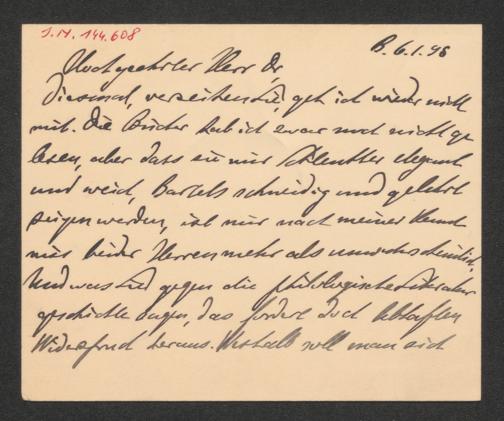 J.N. 144.608
B. 6.1.98
Hochgeehrter Herr Dr,
Diesmal, verzeihen Sie, geh ich wieder nicht
mit. Die Bücher hab ich zwar noch nicht ge
lesen, aber dass sie mir Schlenther elegant
und weich, Bartels schneidig und gelehrt
zeigen werden, ist mir nach meiner Kennt
nis beider Herren mehr als unwahrscheinlich.
Und was Sie gegen die philologische Literatur
geschichte sagen, das fordert doch lebhaften
Widerspruch heraus. Weshalb soll man sich